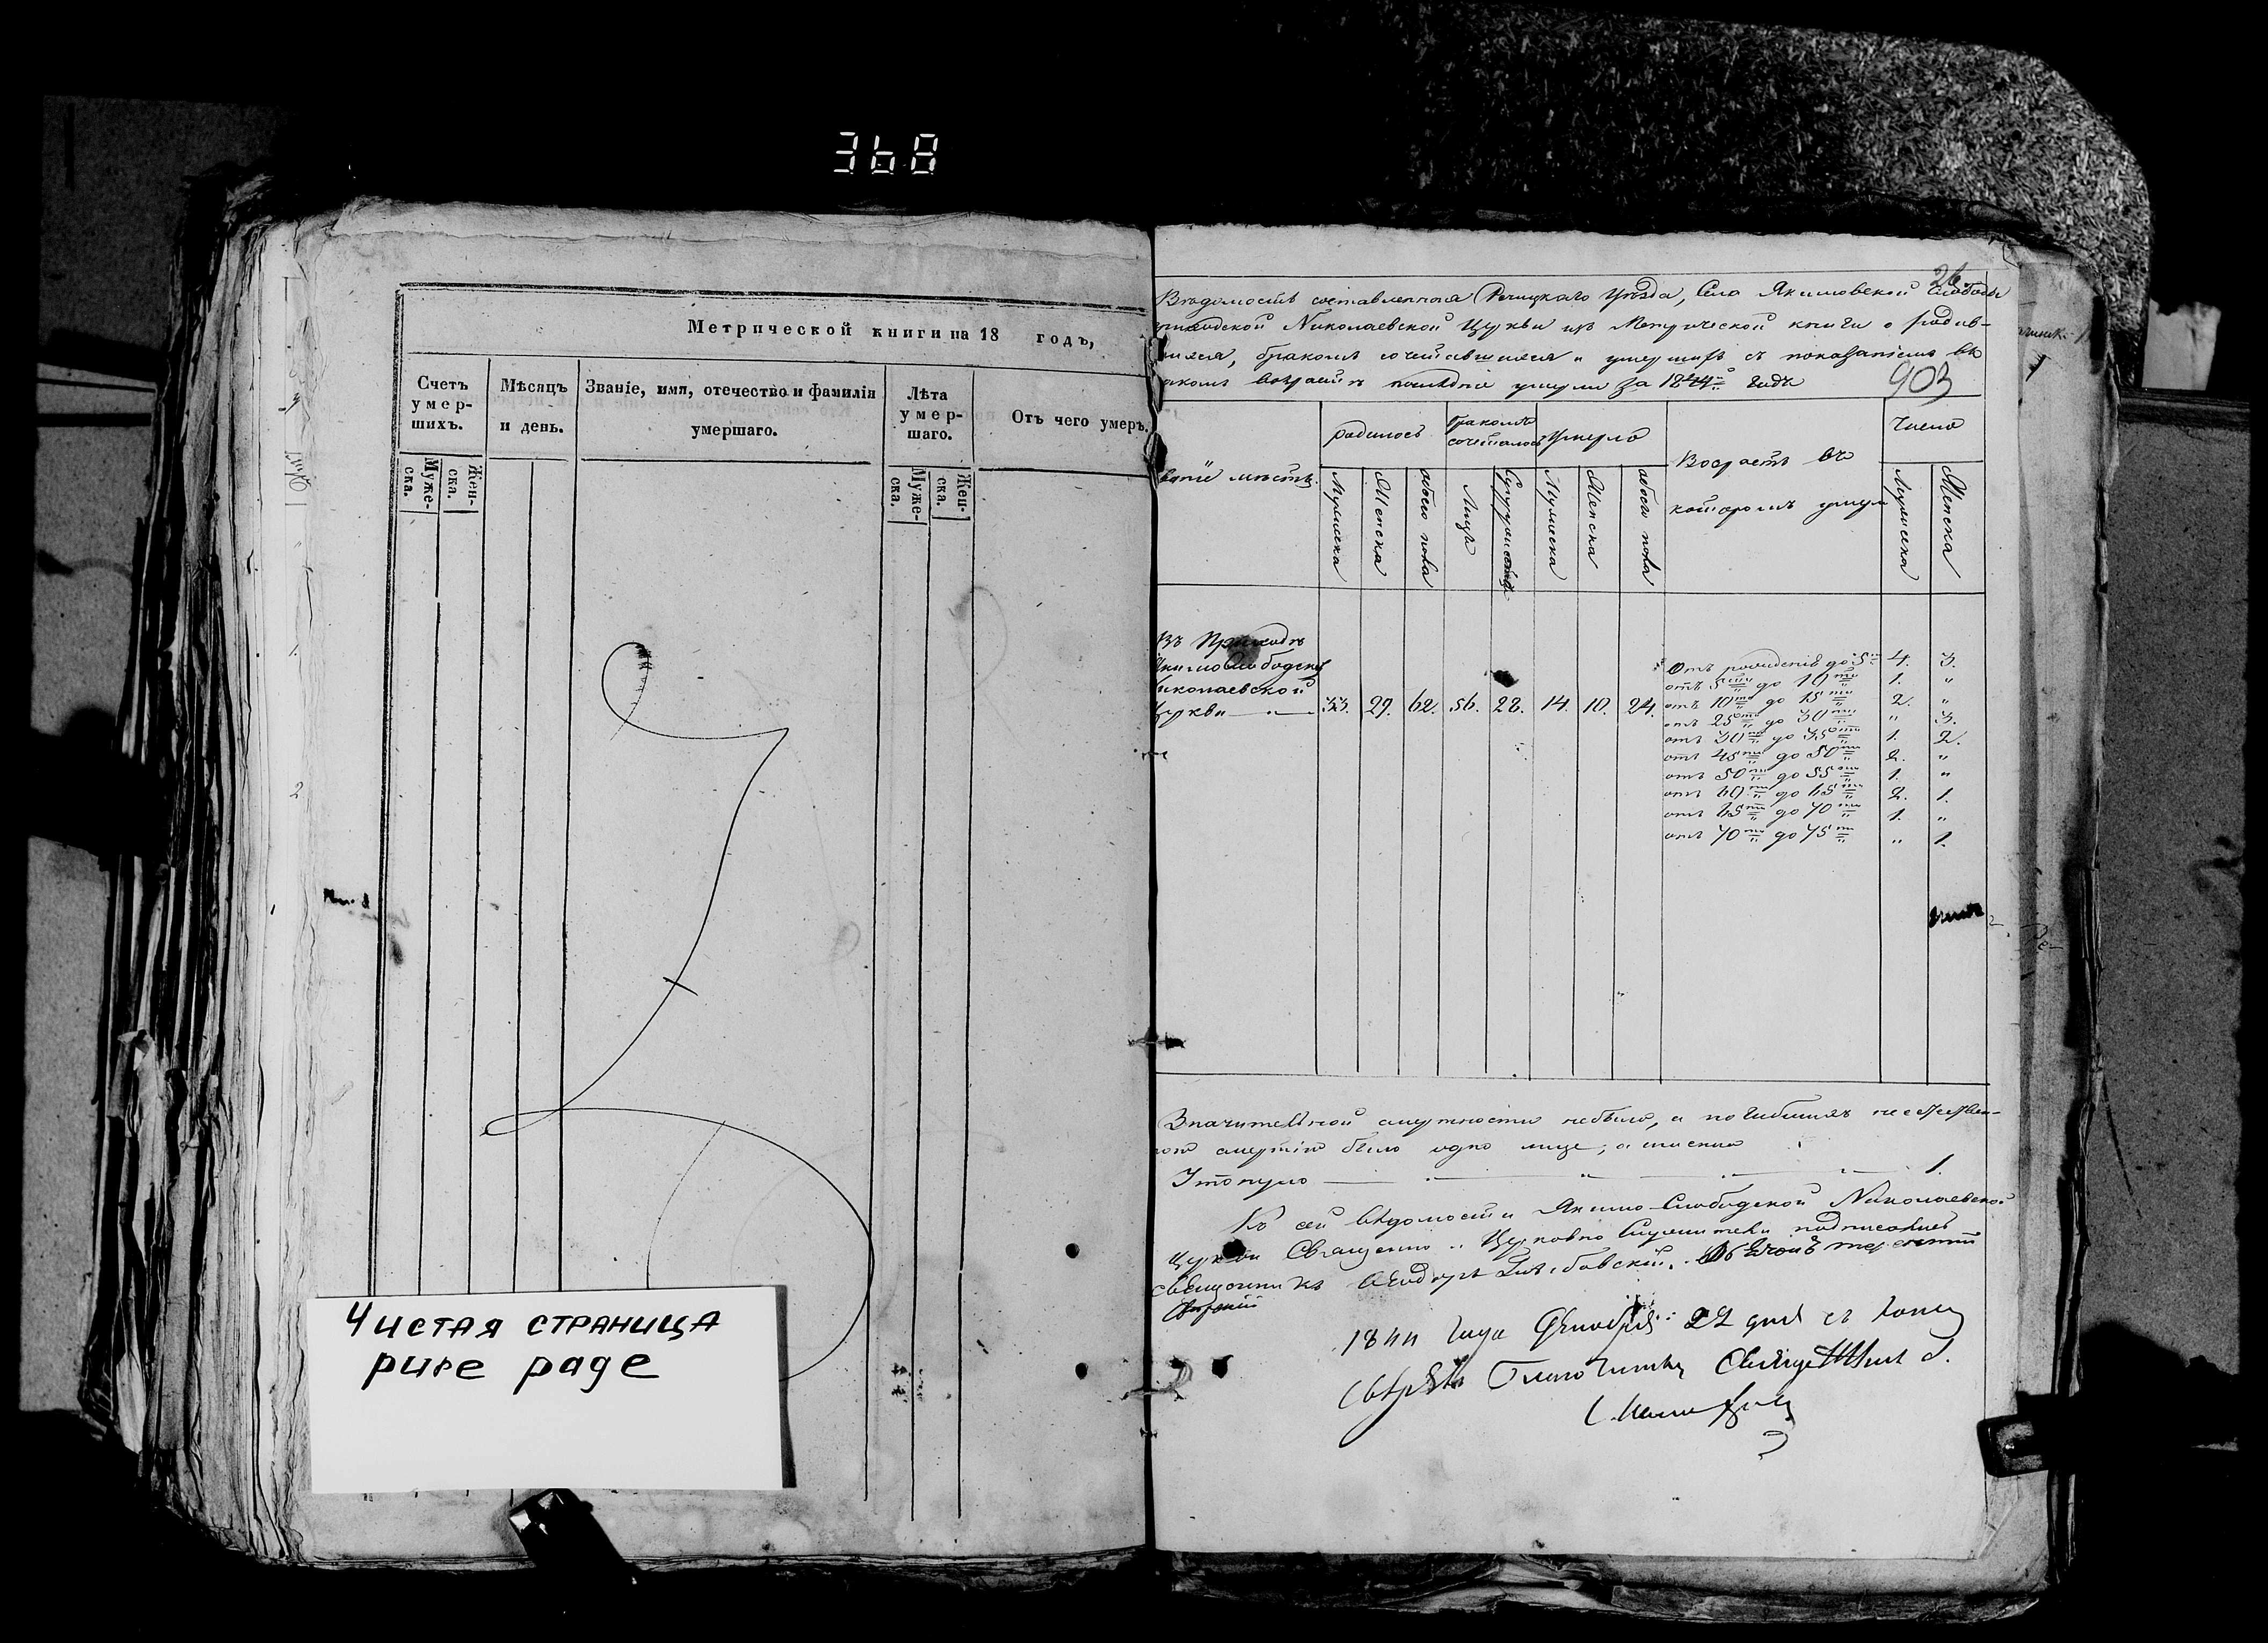 368
Метрической книги на 18 годъ,
Счетъ умер-шихъ.
Мѣсяцъ и день.
Званіе, имя, отечество и фамилія умершаго.
Лѣта умер-шаго.
Отъ чего умеръ.
Муже-ска.
Жен-ска.
Муже-ска.
Жен-ска.
Чистая страница
pure page
26.
Вѣдомость составленная Речицкаго Уѣзда, Села Якимовской Слободы
Николаевской Церкви изъ Метрической книги о родив-
шихся, бракомъ сочетавшихся и умершихъ съ показаніемъ въ
какомъ возрастѣ послѣдніе умерли за 1844й годъ
903
вание мѣстъ
родилось
бракомъ сочеталось
умерло
Возрастъ въ
которомъ умерли
Число
Мужеска
Женска
обоего пола
Лицъ
Супружествъ
Мужеска
Женска
обоего пола
Мужеска
Женска
Въ Приходѣ
Якимо Слободской
Николаевской
Церкви
33. 29. 62. 56. 28. 14. 10. 24.
Отъ рожденія до 5ти 4. 3.
отъ 5ти до 10ти 1. "
отъ 10ти до 15ти 2. "
отъ 25ти до 30ти " 3.
отъ 30ти до 35ти 1. 2.
отъ 45ти до 50ти 2. "
отъ 50ти до 55ти 1. "
отъ 60ти до 65ти 2. 1.
отъ 65ти до 70ти 1. "
отъ 70ти до 75ти " 1.
Значительной смертности небыло, а погибшихъ неестествен-
ною смертію было одно лице, а именно
Утонуло 1.
Къ сей вѣдомости Якимо-Слободской Николаевской
Церкви Священно и Церковно Служители подписались
священникъ Ѳеодоръ
1844 года Декабря 27 дня съ
Благочинный